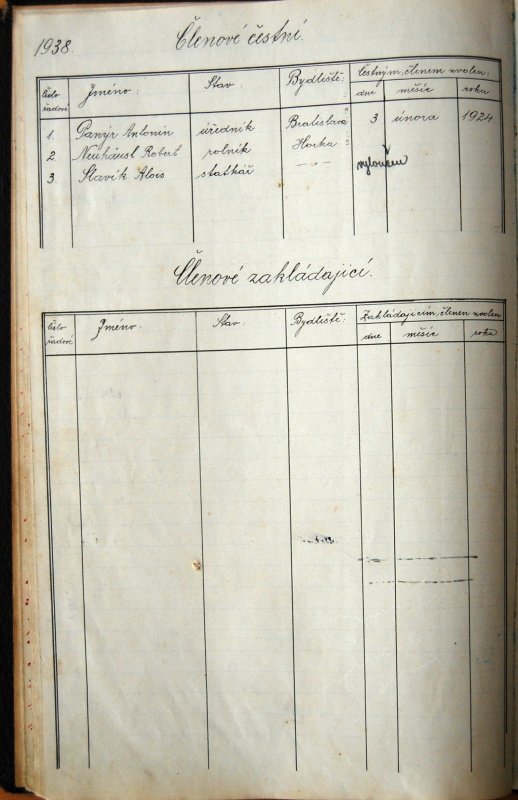 1938.
Členové čestní.
Číslo řadové
Jméno:
Stav:
Bydliště:
Čestným členem zvolen:
dne
měsíc
roku
1. Panýr Antonín úředník Bratislava 3 února 1924
2 Neuhäusl Robert rolník Horka "
3. Slavík Alois statkář —"— vyloučen
Členové zakládající.
Číslo řadové
Jméno:
Stav:
Bydliště:
Zakládajícím členem zvolen
dne
měsíc
roku